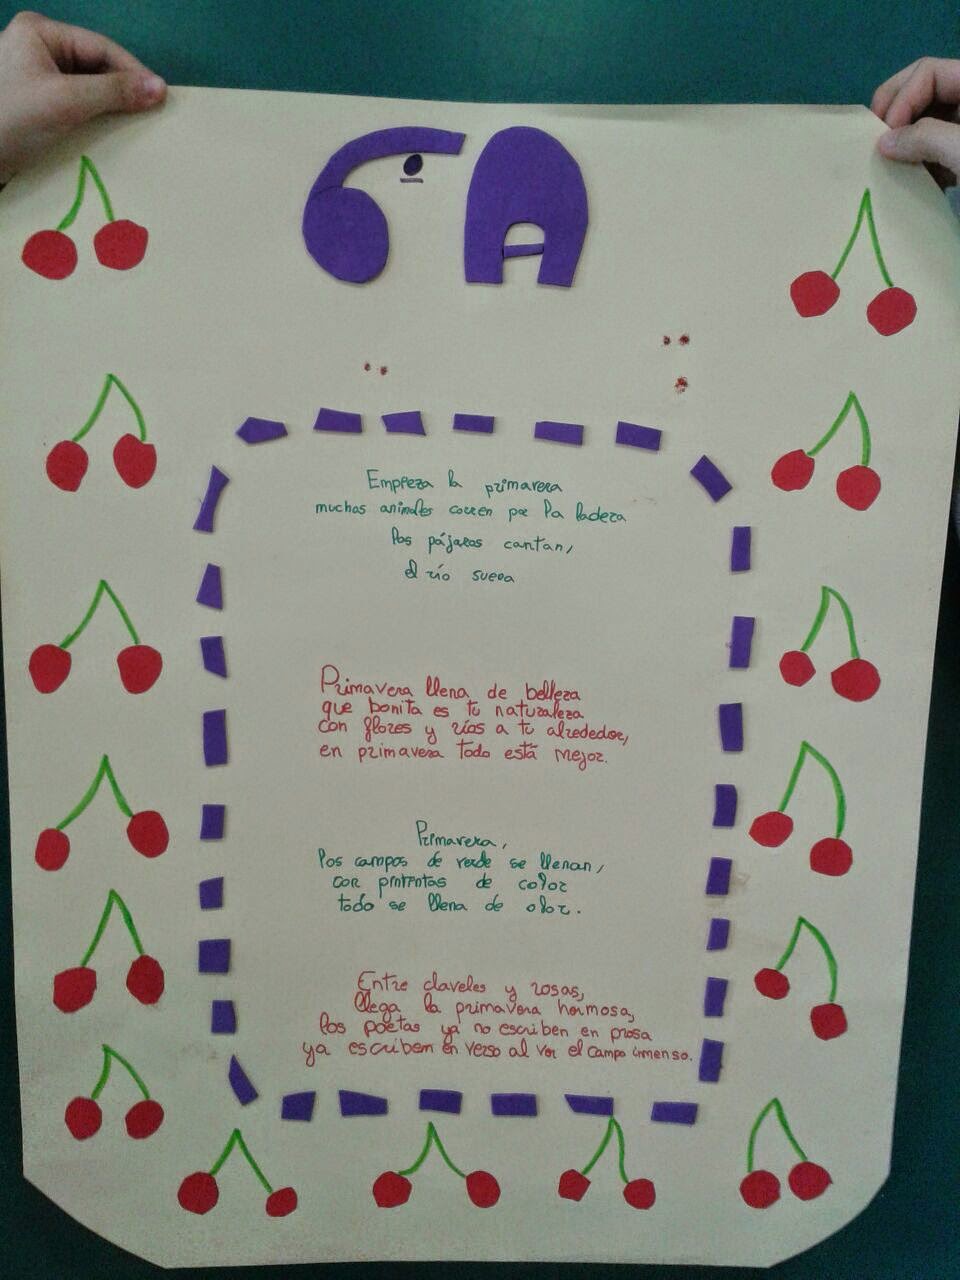 6º A
Empieza la primavera
muchos animales corren por la ladera
los pájaros cantan,
el río suena
Primavera llena de belleza
que bonita es tu naturaleza
con flores y ríos a tu alrededor,
en primavera todo está mejor.
Primavera,
los campos de verde se llenan,
con pintintas de color
todo se llena de olor.
Entre claveles y rosas,
llega la primavera hermosa,
los poetas ya no escriben en prosa
ya escriben en verso al ver el campo inmenso.